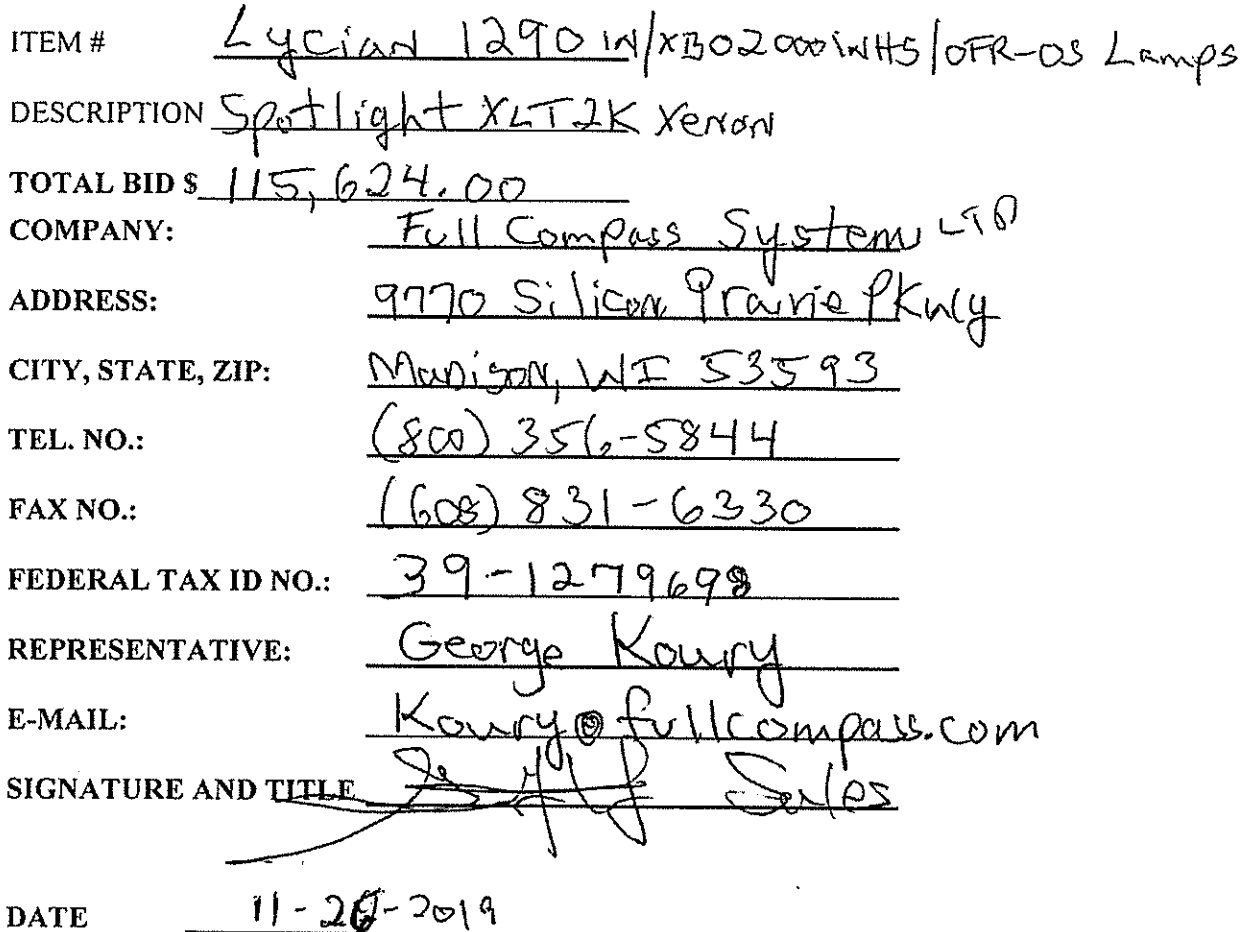 ITEM # Lycian 1290 in/XBO2000inH5/OFR-OS Lamps
DESCRIPTION Spotlight XLT2K Xenon
TOTAL BID $ 115,624.00
COMPANY: Full Compass Systems LTD
ADDRESS: 9770 Silicon Prairie Pkwy
CITY, STATE, ZIP: Madison, WI 53593
TEL. NO.: (800) 356-5844
FAX NO.: (608) 831-6330
FEDERAL TAX ID NO.: 39-1279698
REPRESENTATIVE: George Koury
E-MAIL: Koury@fullcompass.com
SIGNATURE AND TITLE Sales
DATE 11-26-2019